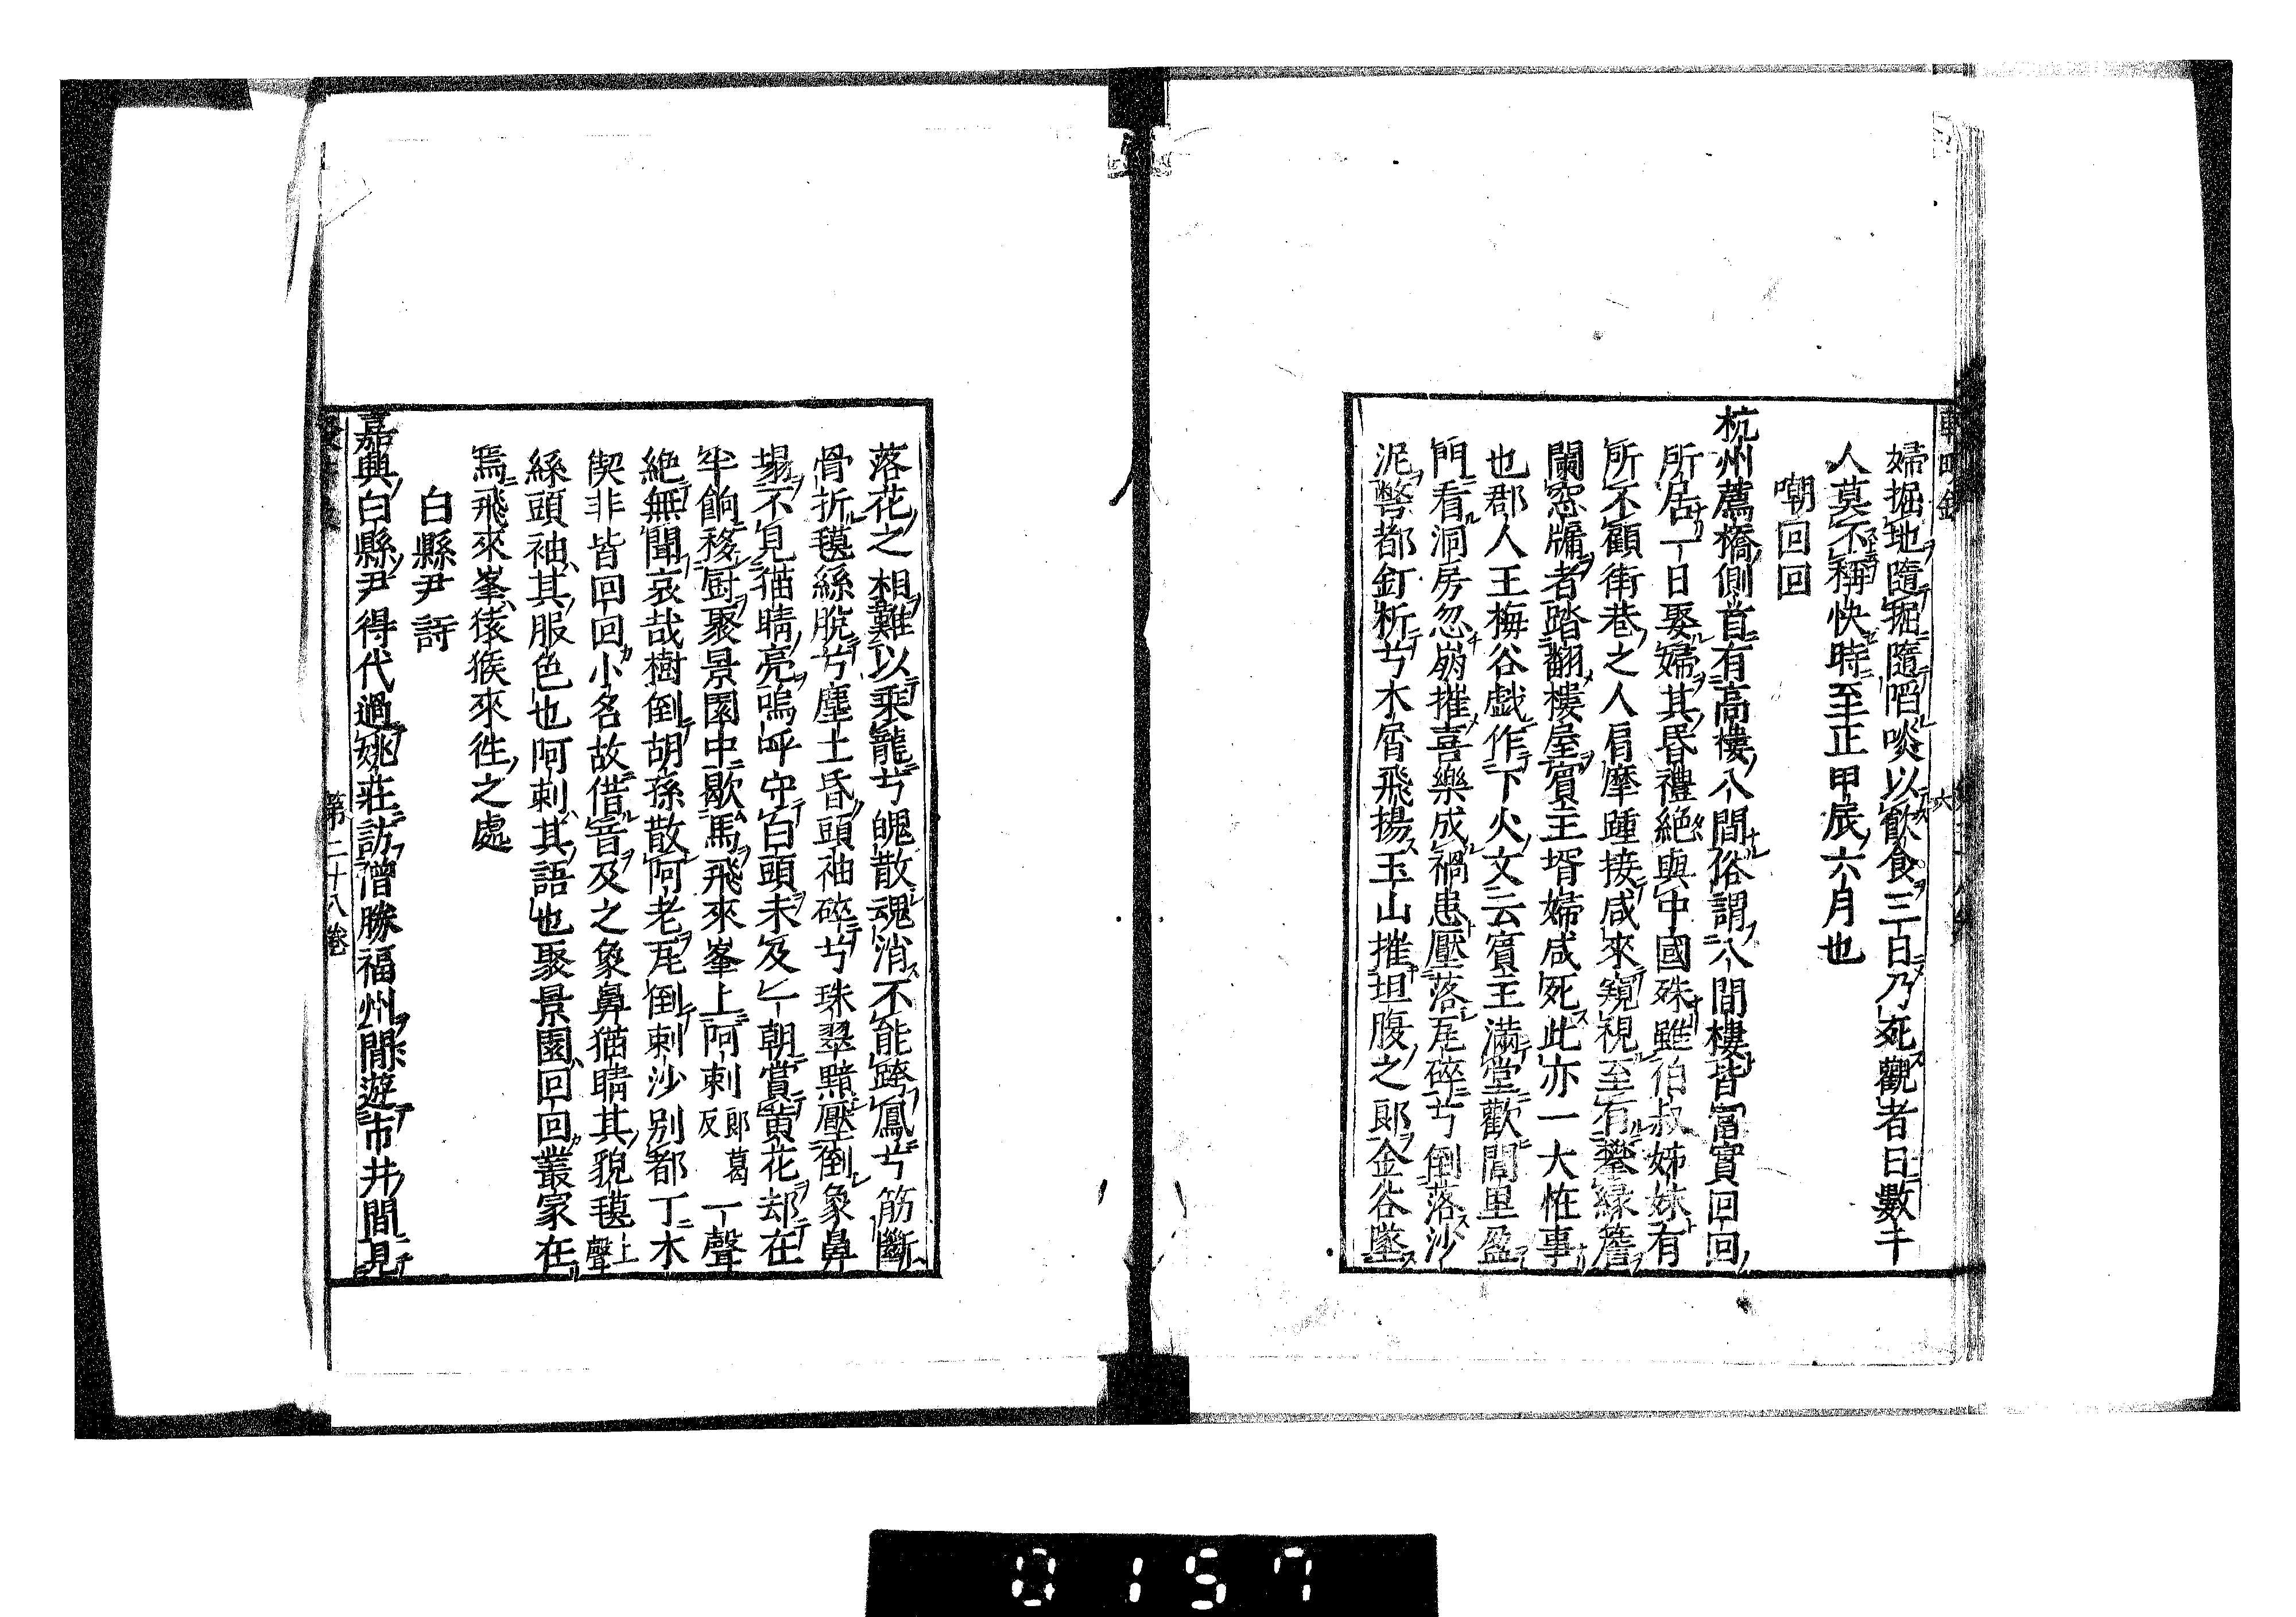 婦掘地隨掘隨陷啖以飲食三日乃死觀者日數千
人莫不稱快時至正甲辰六月也
嘲回回
杭州薦橋側首有高樓八間俗謂八間樓皆富實回回
所居一日娶婦其昏禮絶與中國殊雖伯叔姊妹有
所不顧街巷之人肩摩踵接咸來窺視至有攀緣簷
闌窓牖者踏翻樓屋賓主壻婦咸死此亦一大恠事
也郡人王梅谷戯作下火文云賓主滿堂歡閭里盈
門看洞房忽崩摧喜樂成禍患壓落瓦碎兮倒落沙
泥鼈都釘析兮木屑飛揚玉山摧坦腹之郎金谷墜
落花之相難以乗龍兮魄散魂消不能跨鳳兮筋斷
骨折氊絲脫兮塵土昏頭袖碎兮珠翠黯壓倒象鼻
塌不見猫睛亮嗚呼守白頭未及一朝賞黄花却在
半餉移厨聚景園中歇馬飛來峯上阿剌郎葛反一聲
絶無聞哀哉樹倒胡孫散阿老瓦倒剌沙别都丁木
偰非皆回回小名故借音及之象鼻猫睛其貌氊上聲
絲頭袖其服色也阿剌其語也聚景園回回叢冢在
焉飛來峯猿猴來徃之處
白縣尹詩
嘉興白縣尹得代過姚莊訪僧勝福州間遊市井間見
第二十八卷
六
0157